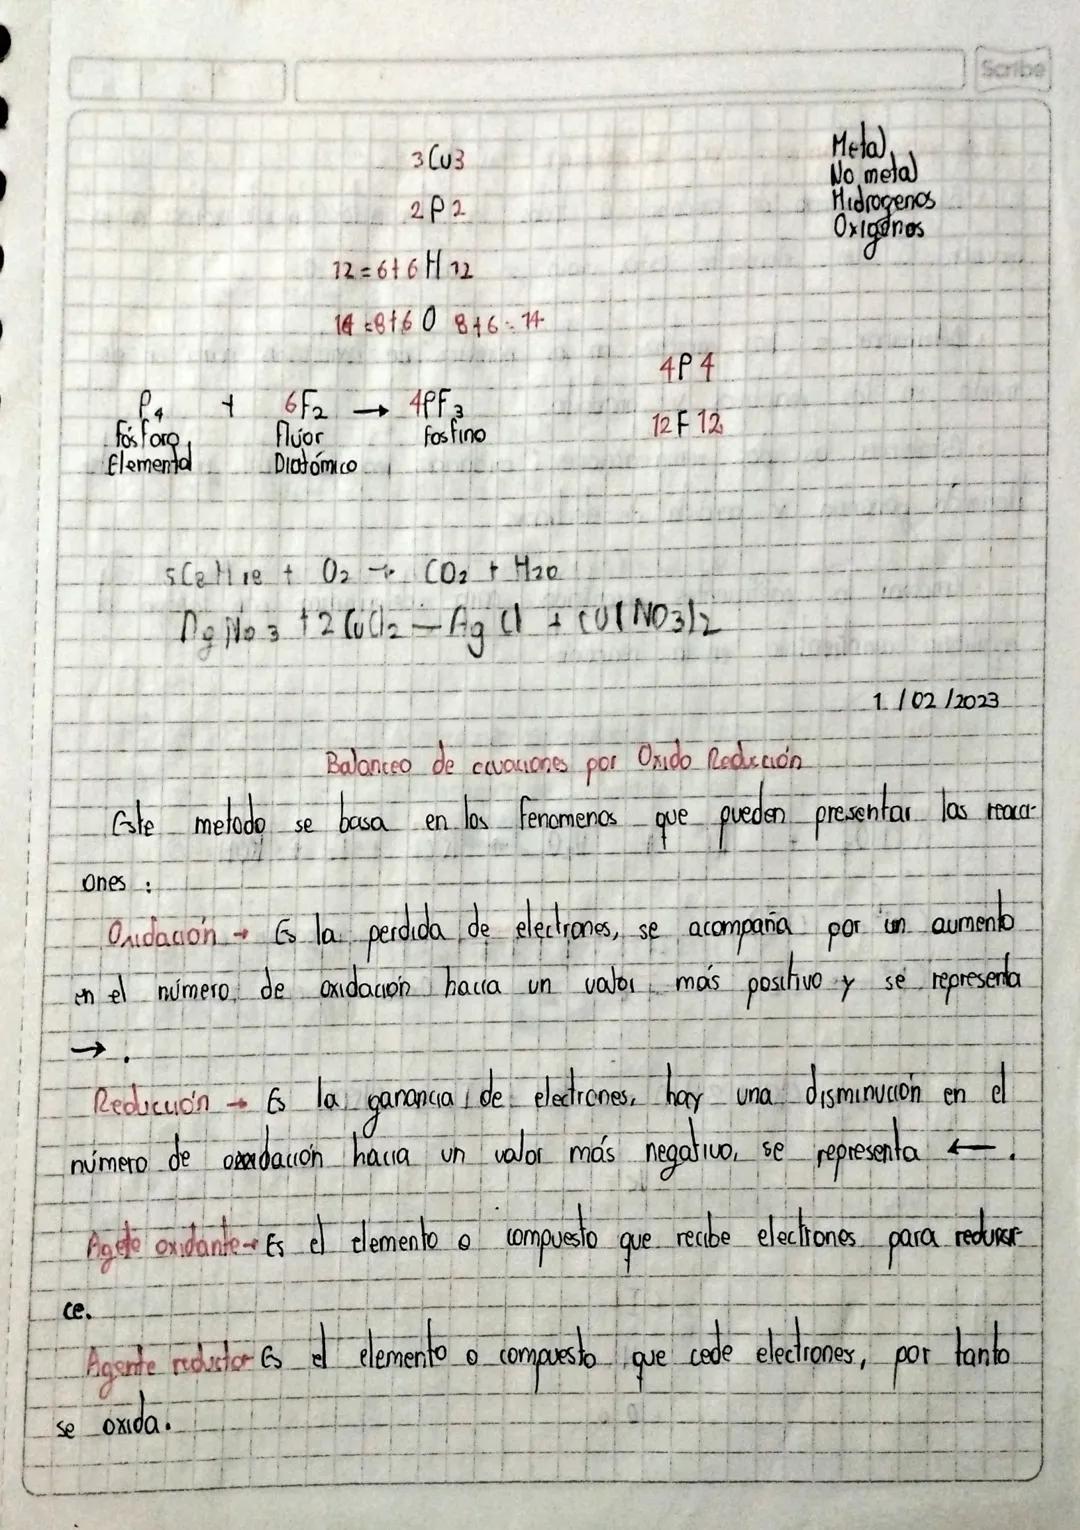 Scribe
3 Cu 3
Metal
No metal
2 P 2
Hidrogenos
Oxigenos
12 = 6+6 H 12
14 = 8+6 O 8+6 = 14
4 P 4
P4 + 6F2 → 4PF3
12 F 12
Fósforo Fluor Fosfino
Elemental Diatómico
O2 → CO2 + H2O
+ 2 CuCl2 — Ag Cl + CU(NO3)2
1 / 02 / 2023
Balanceo de ecuaciones por Oxido Reducción
Este metodo se basa en los fenomenos que pueden presentar las reacci-
ones :
Oxidación → Es la perdida de electrones, se acompaña por un aumento
en el número de oxidación hacia un valor más positivo y se representa
→ .
Reducción → Es la ganancia de electrones, hay una disminución en el
número de oxidación hacia un valor más negativo, se representa ← .
Agete oxidante → Es el elemento o compuesto que recibe electrones para reducir-
ce.
Agente reductor Es el elemento o compuesto que cede electrones, por tanto
se oxida.